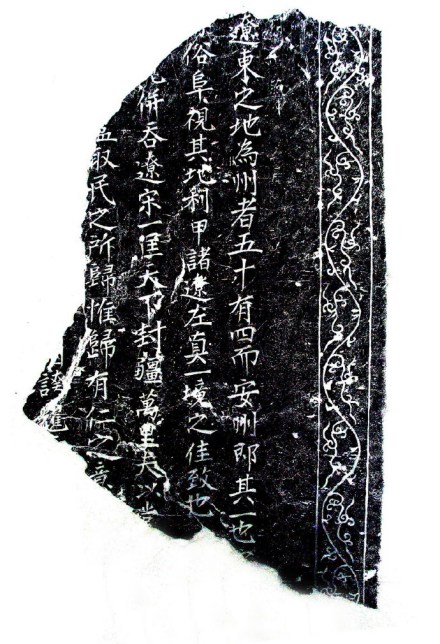 遼東之地為州者五十有四而安州即其一也
俗阜視其地利甲諸遼左寔一境之佳致也
併吞遼宋一匡天下封疆萬里夫以
取民之所歸惟歸有仁之